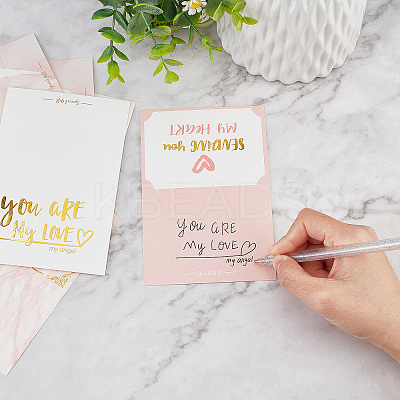 Special Gift
YOU ARE
My LOVE
my angel
SENDING you
My HEART
YOU ARE
My LOVE
my angel
Special Gift
KBEADS